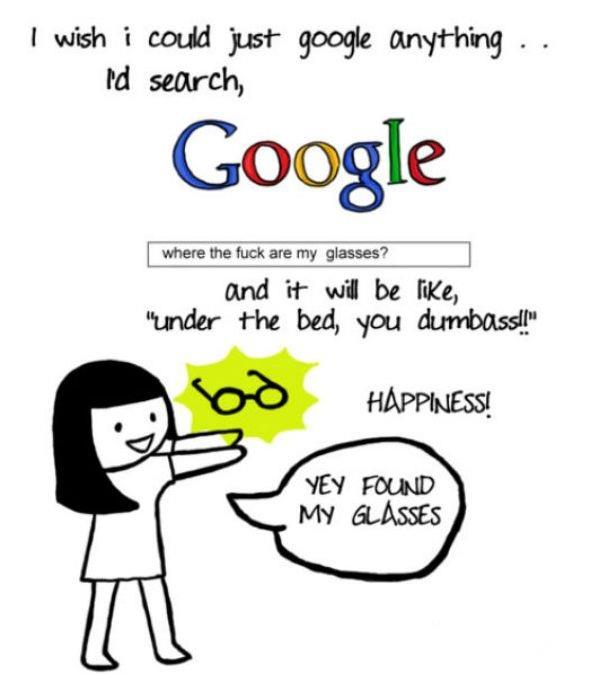 I wish i could just google anything . .
I'd search,
Google
where the fuck are my glasses?
and it will be like,
"under the bed, you dumbass!!"
HAPPINESS!
YEY FOUND
MY GLASSES